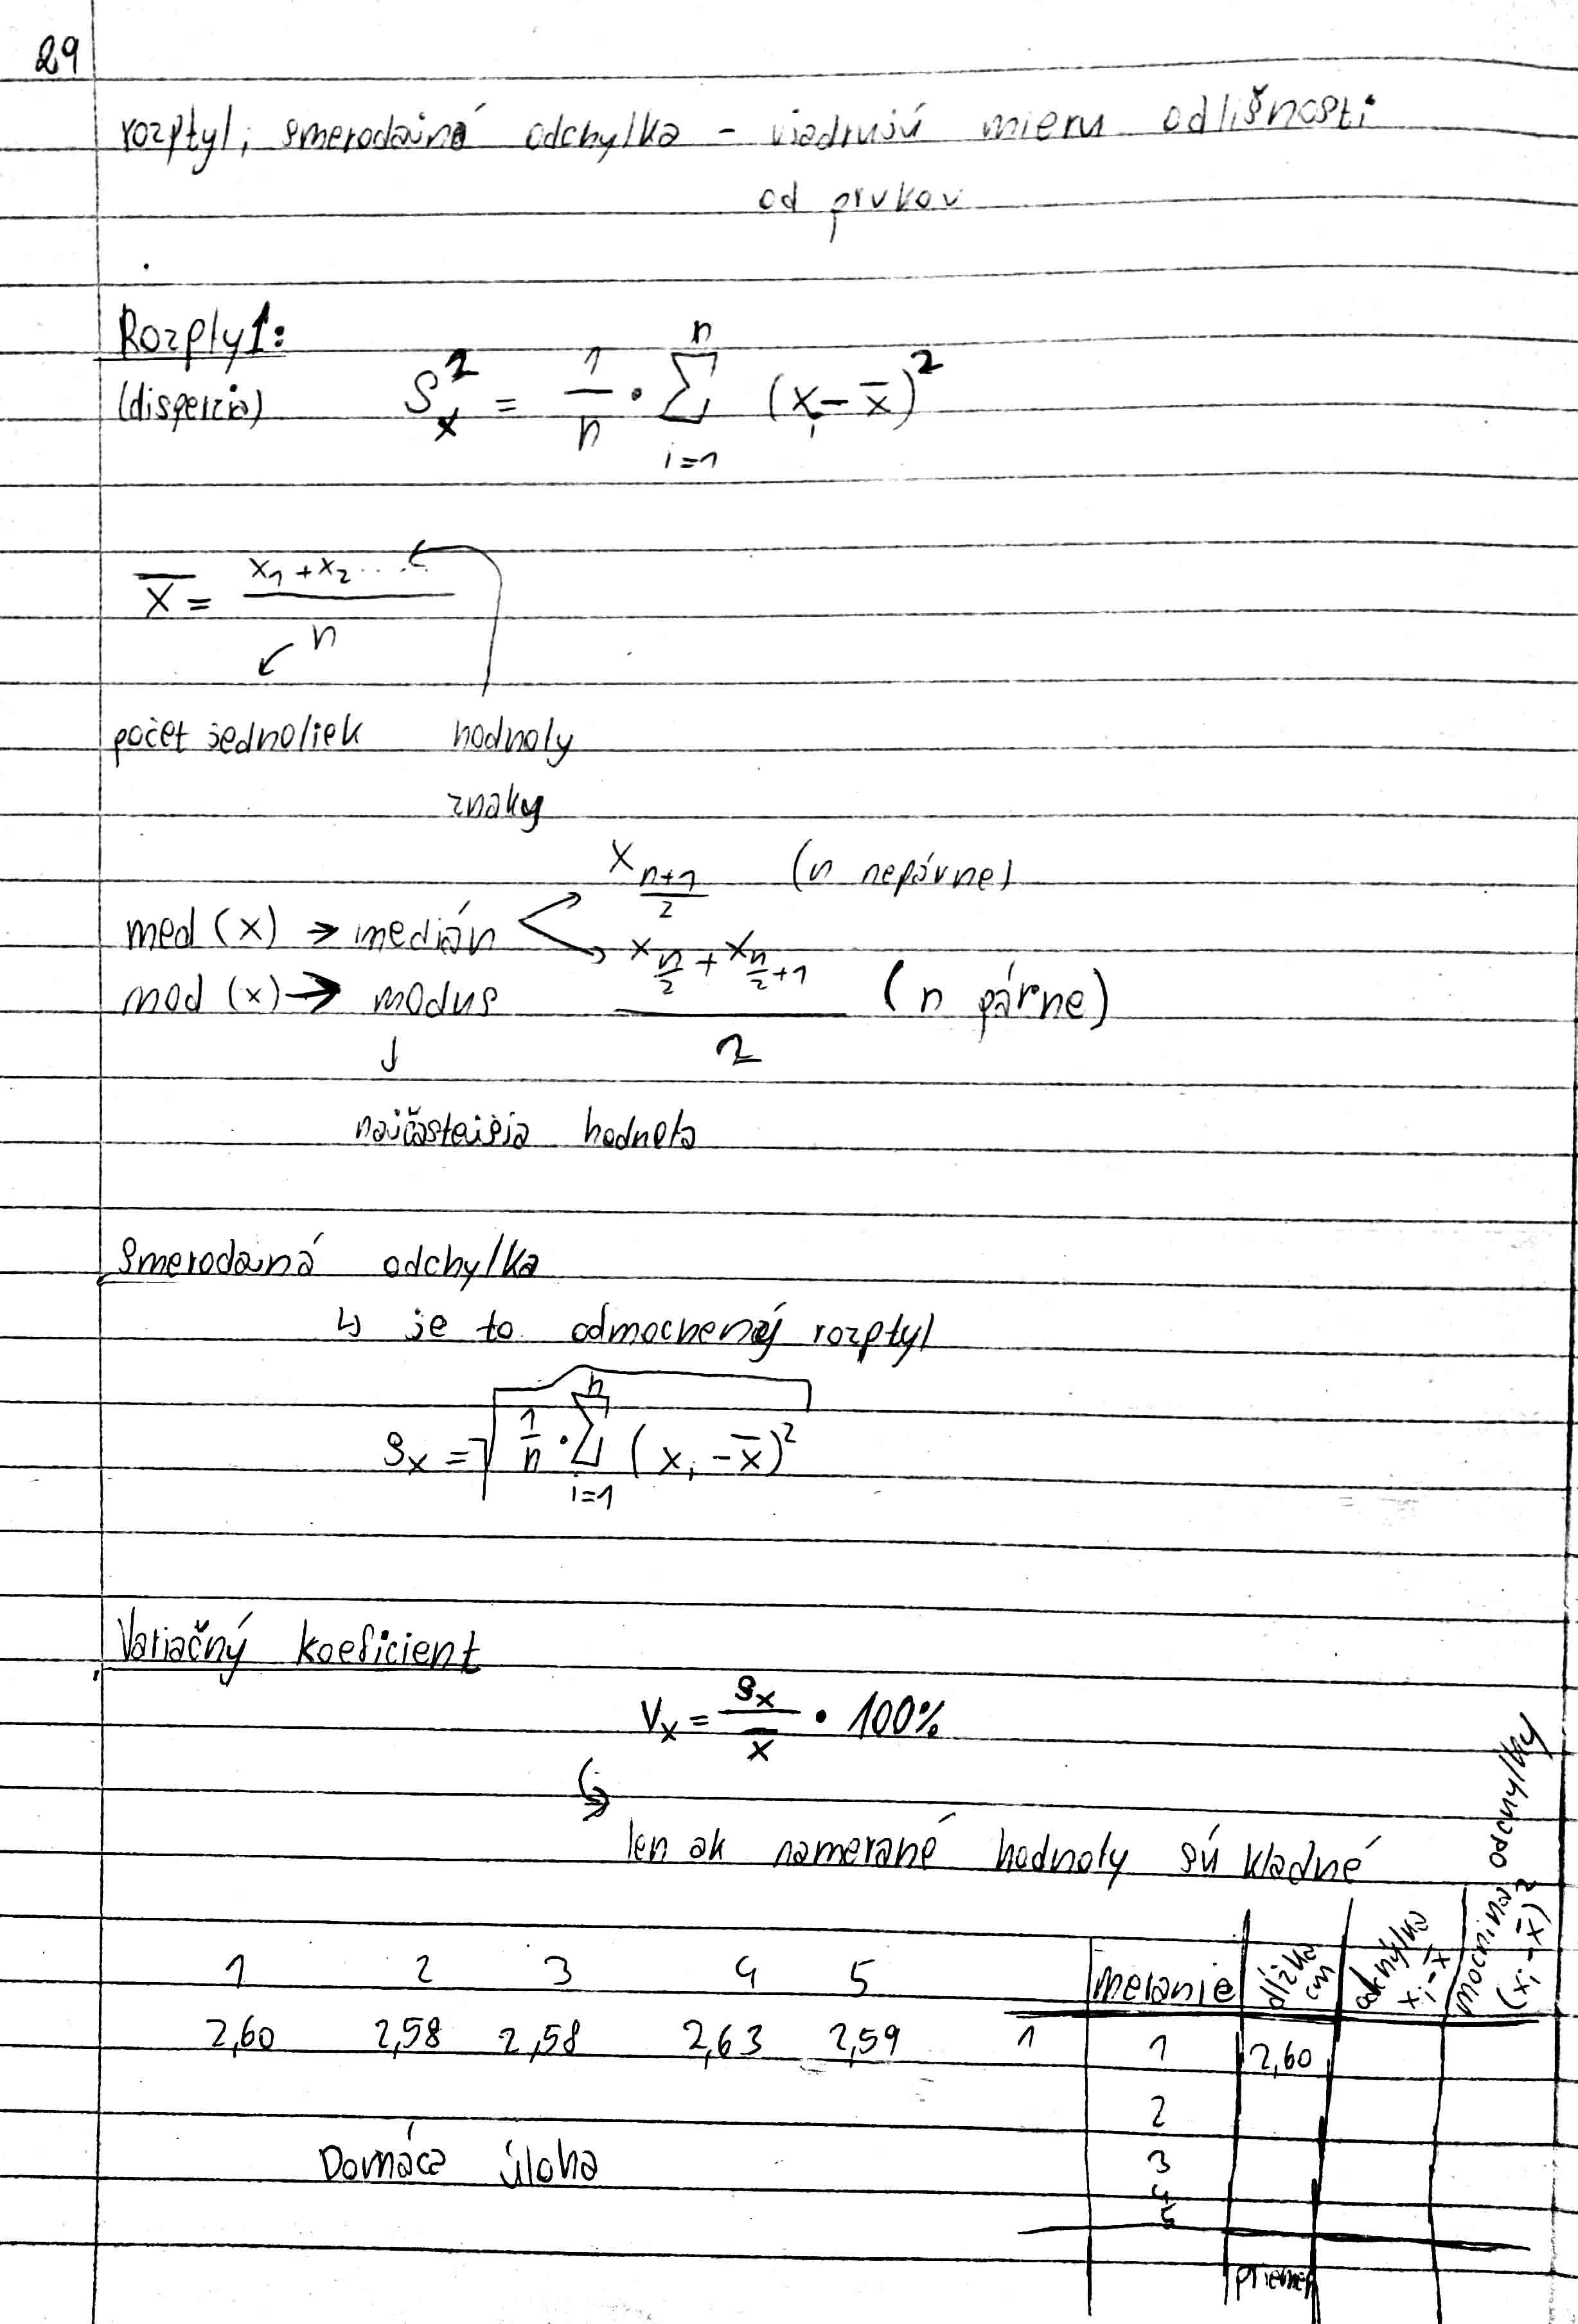 29
rozptyl, smerodajná odchylka - viadrujú mieru odlišnosti
od prvkov
Rozptyl:
(disperzia) S²ₓ = 1/n · ∑ⁿᵢ₌₁ (xᵢ - x̄)²
x̄ = (x₁ + x₂ .....) / n
počet jednotiek hodnoty
znaky
x_(n+1)/2 (n nepárne)
med (x) → medián
mod (x) → modus (x_n/2 + x_n/2+1) / 2 (n párne)
↓
najčastejšia hodnota
Smerodajná odchylka
↳ je to odmocnený rozptyl
sₓ = √(1/n · ∑ⁿᵢ₌₁ (xᵢ - x̄)²)
Variačný koeficient
Vₓ = sₓ/x̄ · 100%
↳ len ak namerané hodnoty sú kladné
1 2 3 4 5
2,60 2,58 2,58 2,63 2,59
Domáca úloha
meranie dĺžka cm odchýlka xᵢ - x̄ mocnina odchylky (xᵢ - x̄)²
1 1 2,60
2
3
4
5
priemer